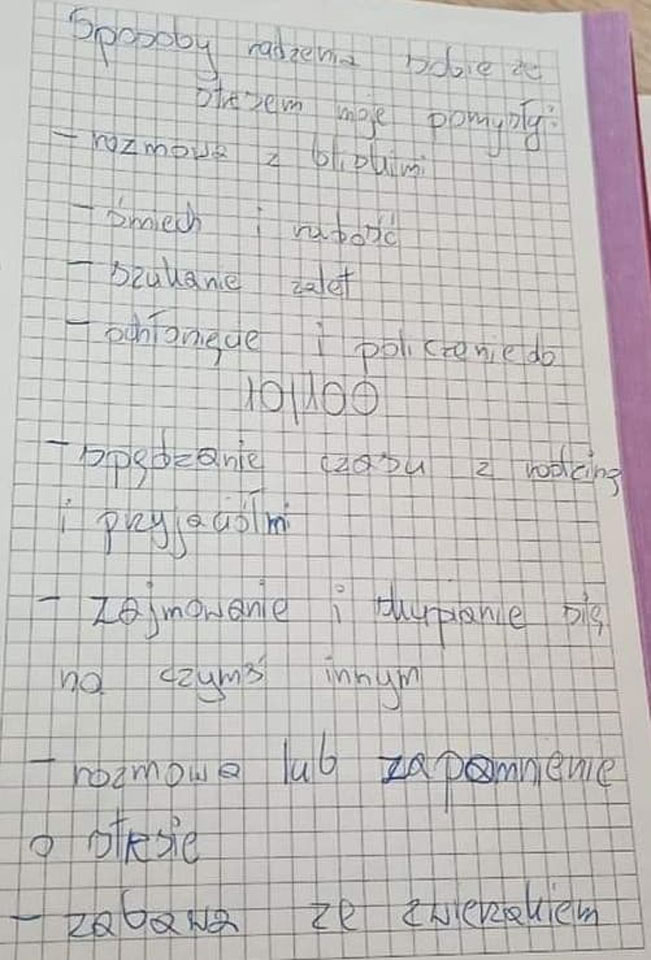 Sposoby radzenia sobie ze
stresem moje pomysły:
- rozmowa z bliskimi
- śmiech i radość
- szukanie zalet
- ochłonięcie i policzenie do
10/100
- spędzanie czasu z rodziną
i przyjaciółmi
- zajmowanie i skupianie się
na czymś innym
- rozmowa lub zapomnienie
o stresie
- zabawa ze zwierzakiem